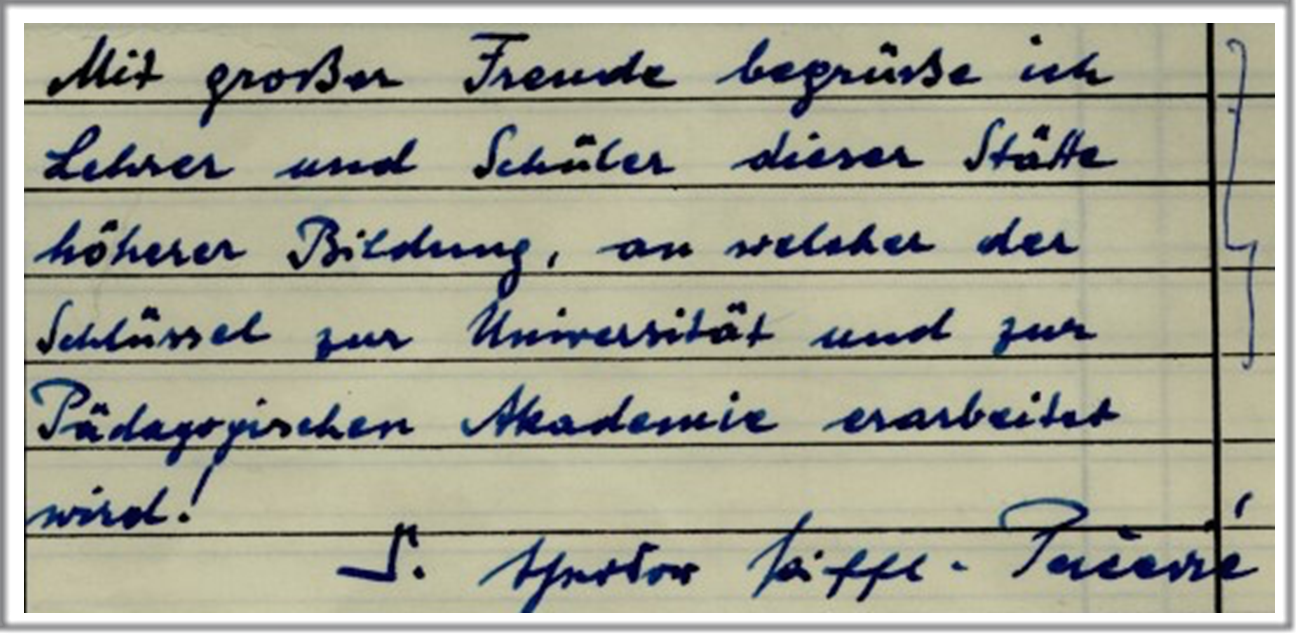 Mit großer Freude begrüße ich
Lehrer und Schüler dieser Stätte
höherer Bildung, an welcher der
Schlüssel zur Universität und zur
Pädagogischen Akademie erarbeitet
wird!
Theodor Piffl-Perčević